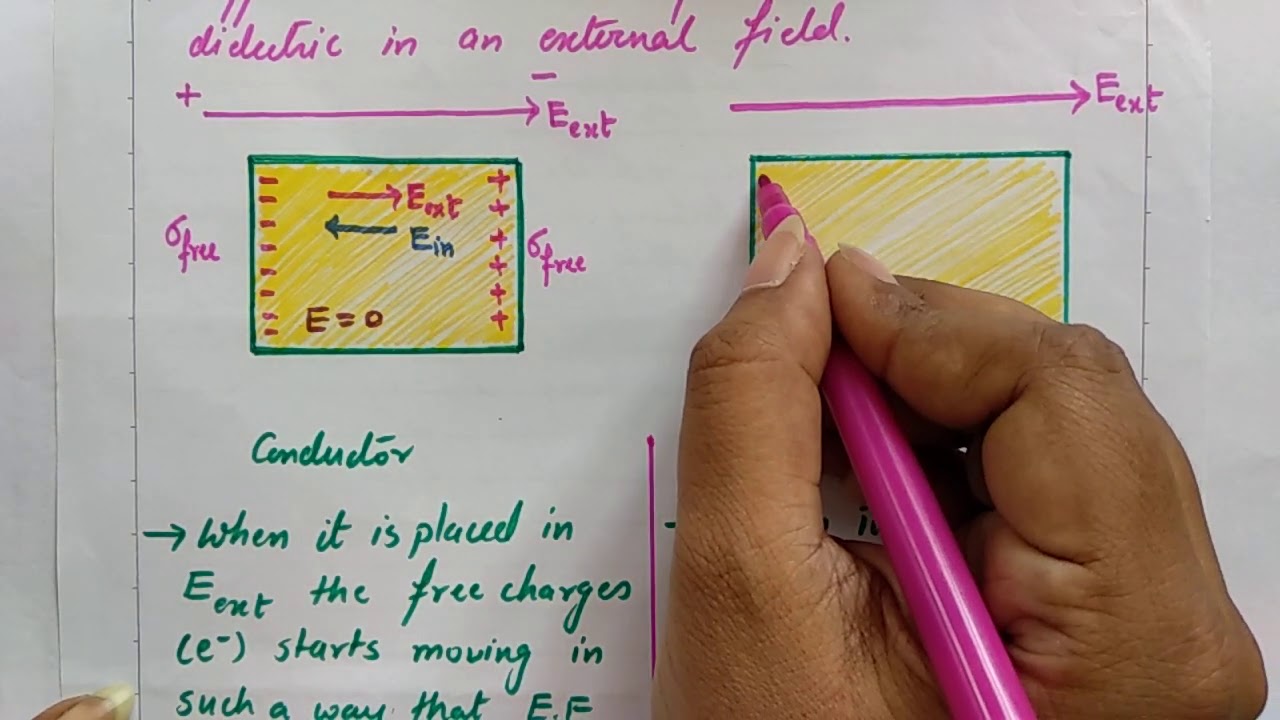 dielectric in an external field.
+ −
E_ext
E_ext
− + E_ext
− +
− σ_free E_in + σ_free
− +
− +
− E = 0 +
−
Conductor
→ When it is placed in
E_ext the free charges
(e⁻) starts moving in
such a way that E.F